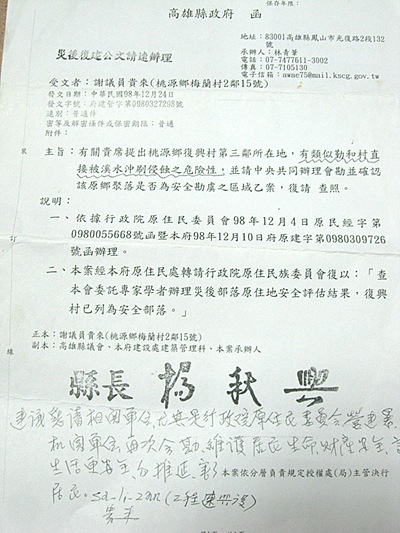 保存年限：
高雄縣政府　函
地址：83001高雄縣鳳山市光復路2段132號
承辦人：林青筆
電話：07-7477611-3002
傳真：07-7105130
電子信箱：awae75@mail.kscg.gov.tw
災後復建公文請速辦理
受文者：謝議員貴來(桃源鄉梅蘭村2鄰15號)
發文日期：中華民國98年12月24日
發文字號：府建管字第0980327298號
速別：普通件
密等及解密條件或保密期限：普通
附件：
主旨：有關貴席提出桃源鄉復興村第三鄰所在地，有類似勤和村直
接被溪水沖刷侵蝕之危險性，並請中央共同辦理會勘並確認
該原鄉聚落是否為安全勘虞之區域乙案，復請 查照。
說明：
一、依據行政院原住民委員會98年12月4日原民經字第
0980055668號函暨本府98年12月10日府原建字第0980309726
號函辦理。
二、本案經本府原住民處轉請行政院原住民族委員會復以：「查
本會委託專家學者辦理災後部落原住地安全評估結果，復興
村已列為安全部落。」
訂
線
正本：謝議員貴來(桃源鄉梅蘭村2鄰15號)
副本：高雄縣議會、本府建設處建築管理科、本案承辦人
縣長 楊秋興
建議懇請相關單位尤其是行政院原住民委員會營建署
相關單位再次會勘,維護居民生命財產安全
生活更安全
本案依分層負責規定授權處(局)主管決行
居民。sa-li-zan